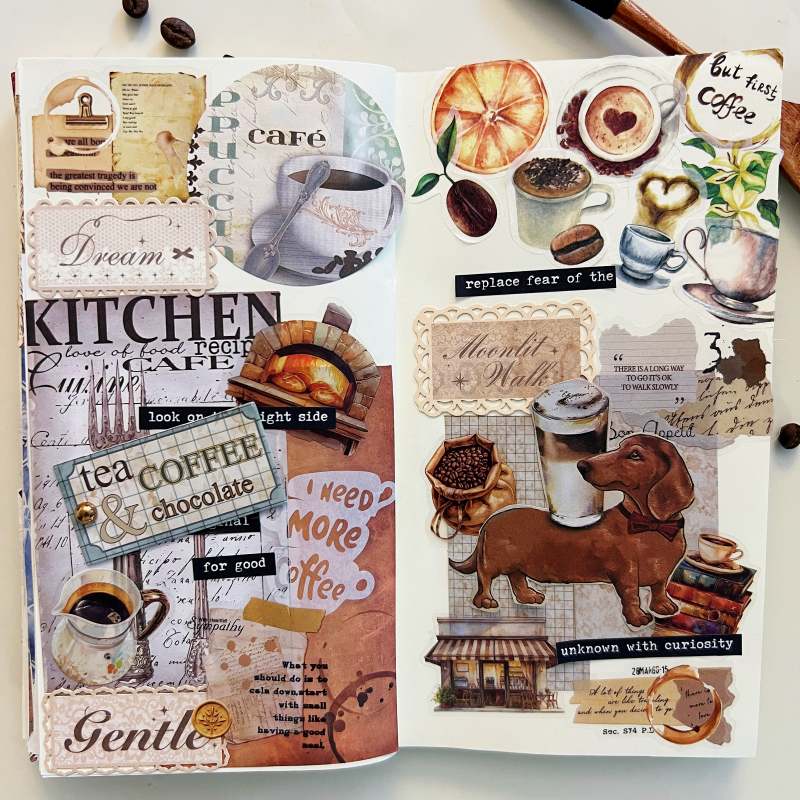 are all bo
the greatest tragedy is
being convinced we are not
Dream
puccin
café
KITCHEN
love of food recip
CAFE
Cuisine
look on the right side
tea COFFEE
& chocolate
for good
I NEED
MORE
coffee
Sympathy
What you
should do is to
calm down,start
with small
things like
having a good
meal
Gentle
but first
coffee
replace fear of the
Moonlit
Walk
“
THERE IS A LONG WAY
TO GO IT'S OK
TO WALK SLOWLY
”
3
Bon Appetit
unknown with curiosity
A lot of things
are like traveling
and when you decide to go
there is
more to
love
Sec. 574 P.L